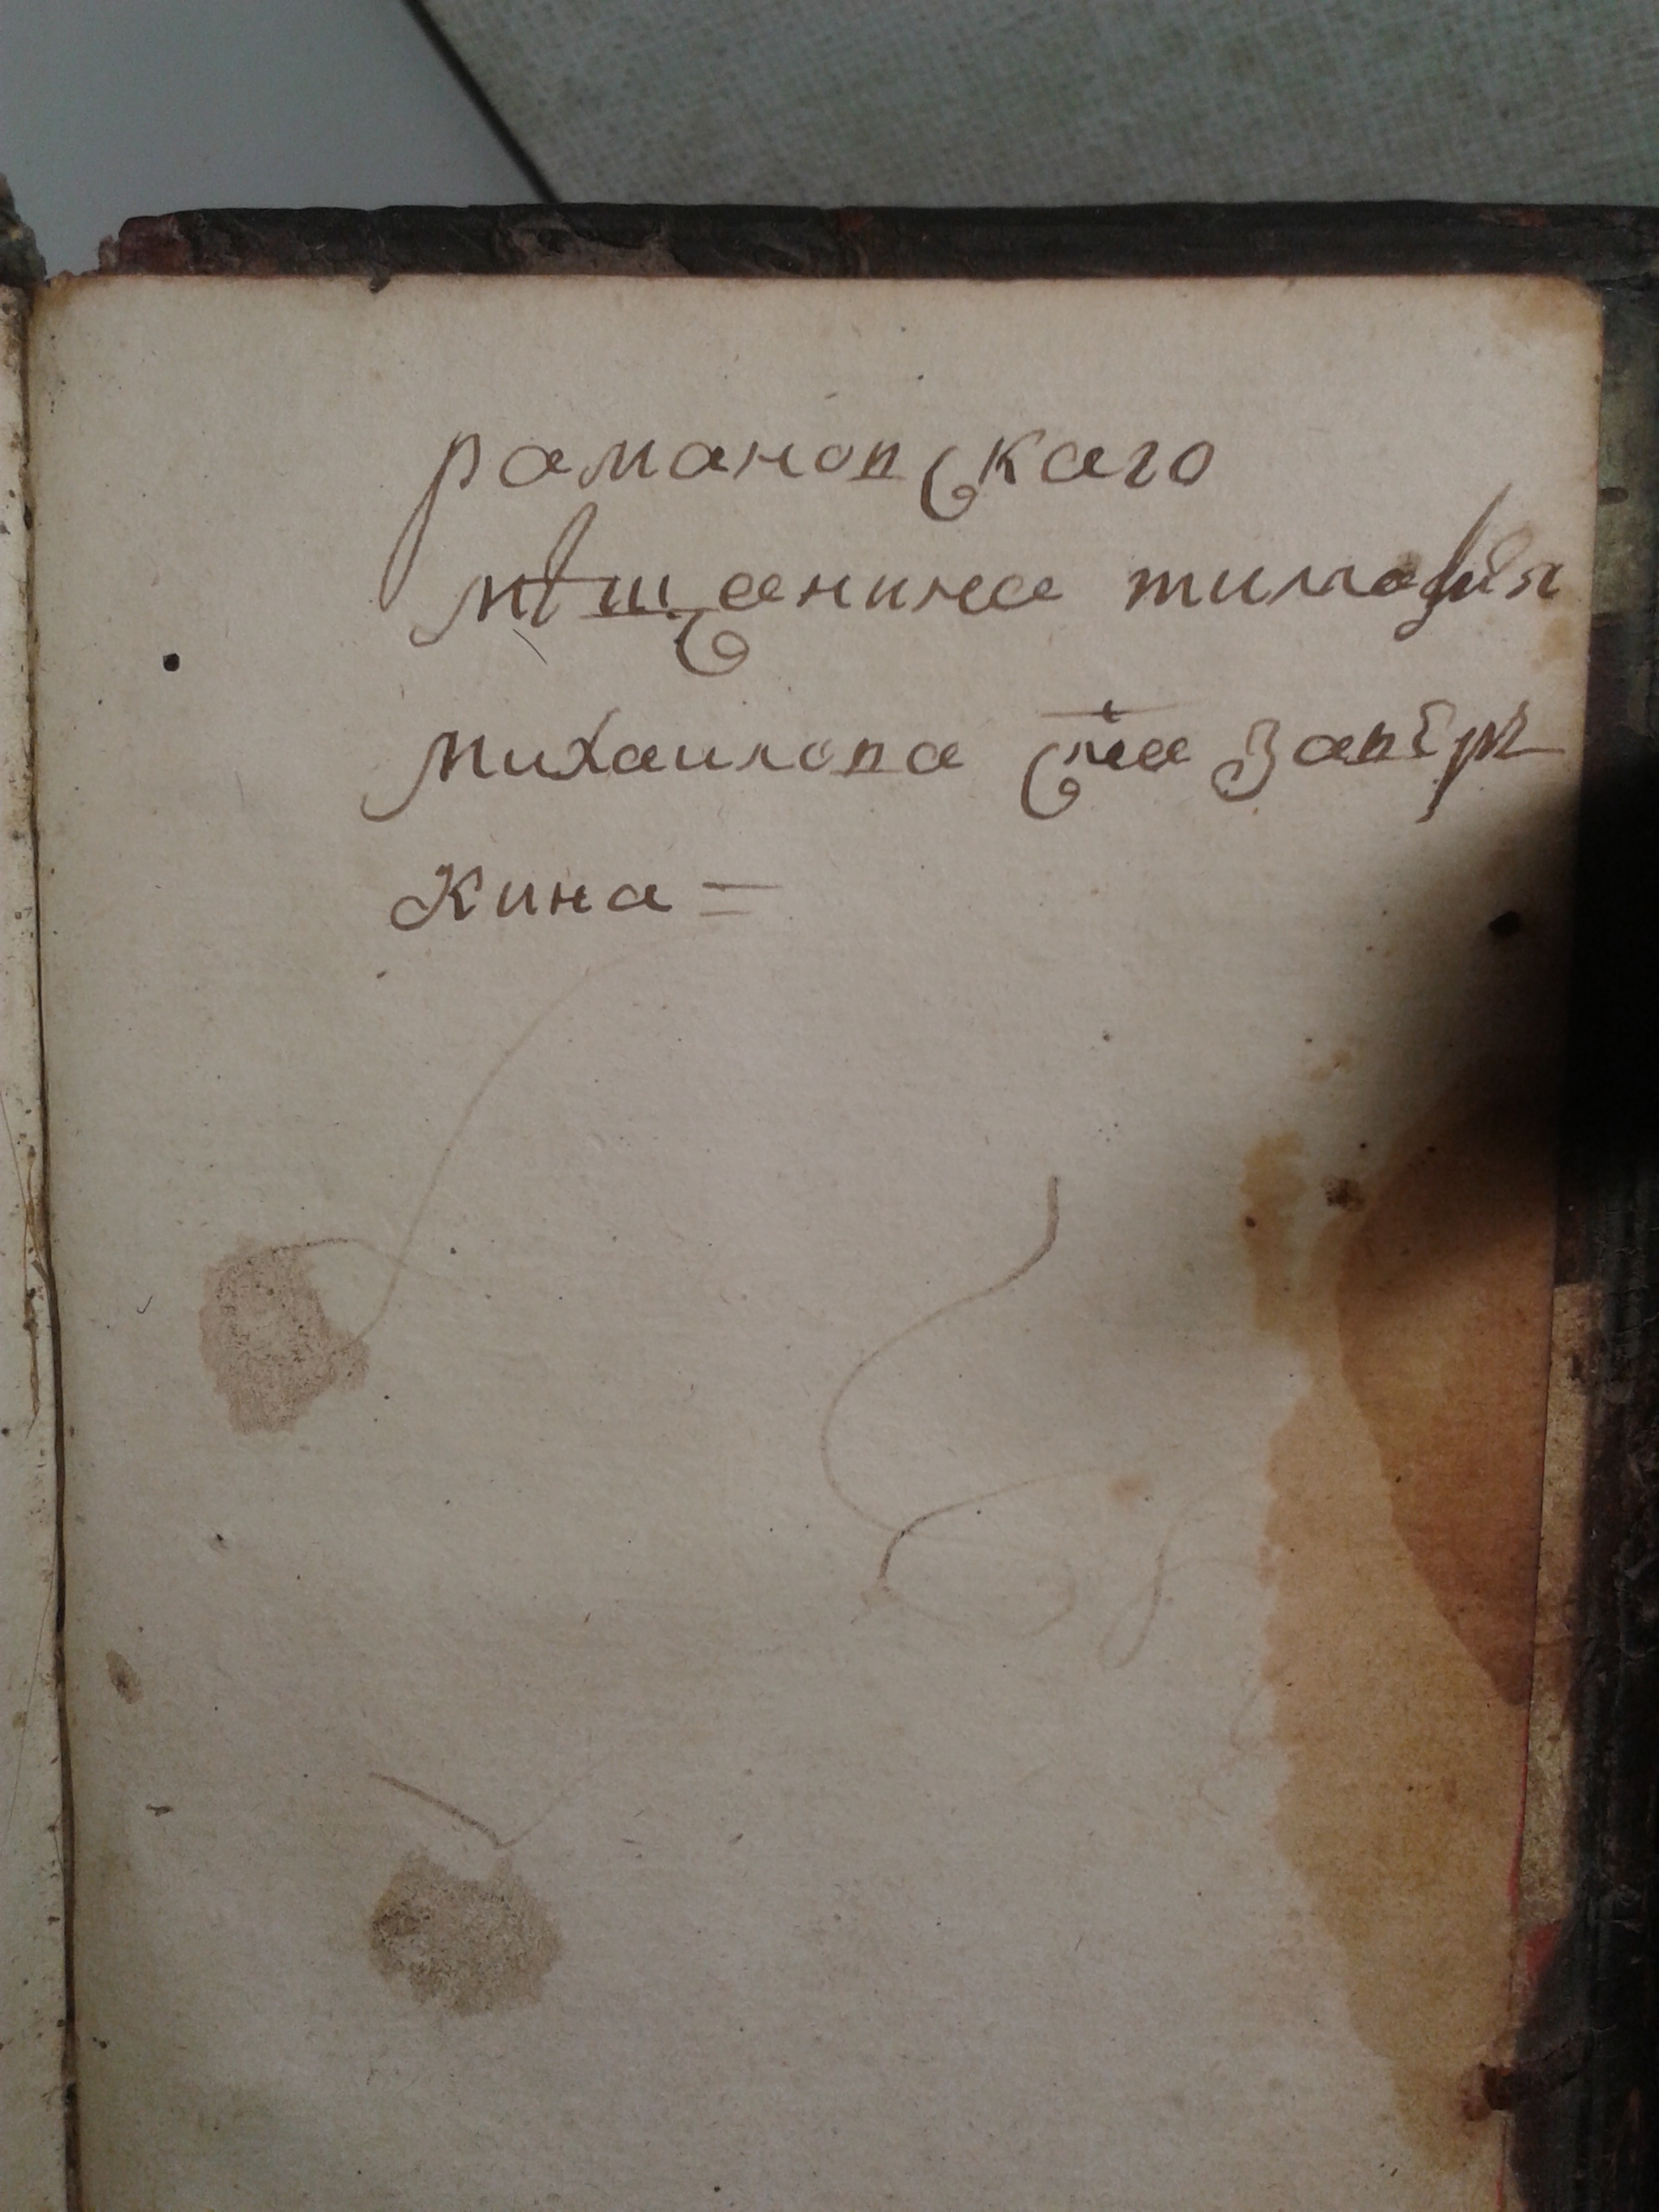 романовскаго
мѣщанина тимофѣя
михаилова сна завѣръ
кина =